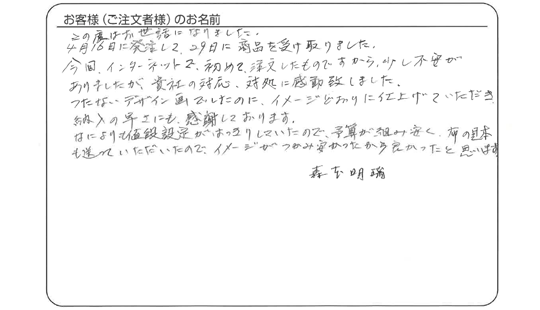 お客様（ご注文者様）のお名前
この度はお世話になりました。
4月16日に発注して、29日に商品を受け取りました。
今回、インターネットで、初めて、注文したものですから、少し不安が
ありましたが、貴社の対応、対処に感動致しました。
つたないデザイン画でしたのに、イメージどおりに仕上げていただき
納入の早さにも、感謝しております。
なによりも値段設定がはっきりしていたので、予算が組み安く、布の見本
も送っていただいたので、イメージがつかみ安かったから良かったと思います
森本明